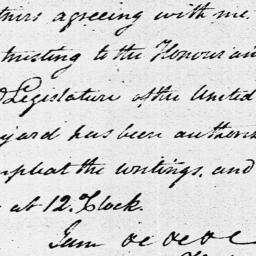 thers agreeing with me.
trusting to the Honour an
Legislature of the United
yard has been author
mpleat the writings, and
at 12. Clock.
I am &c &c &c